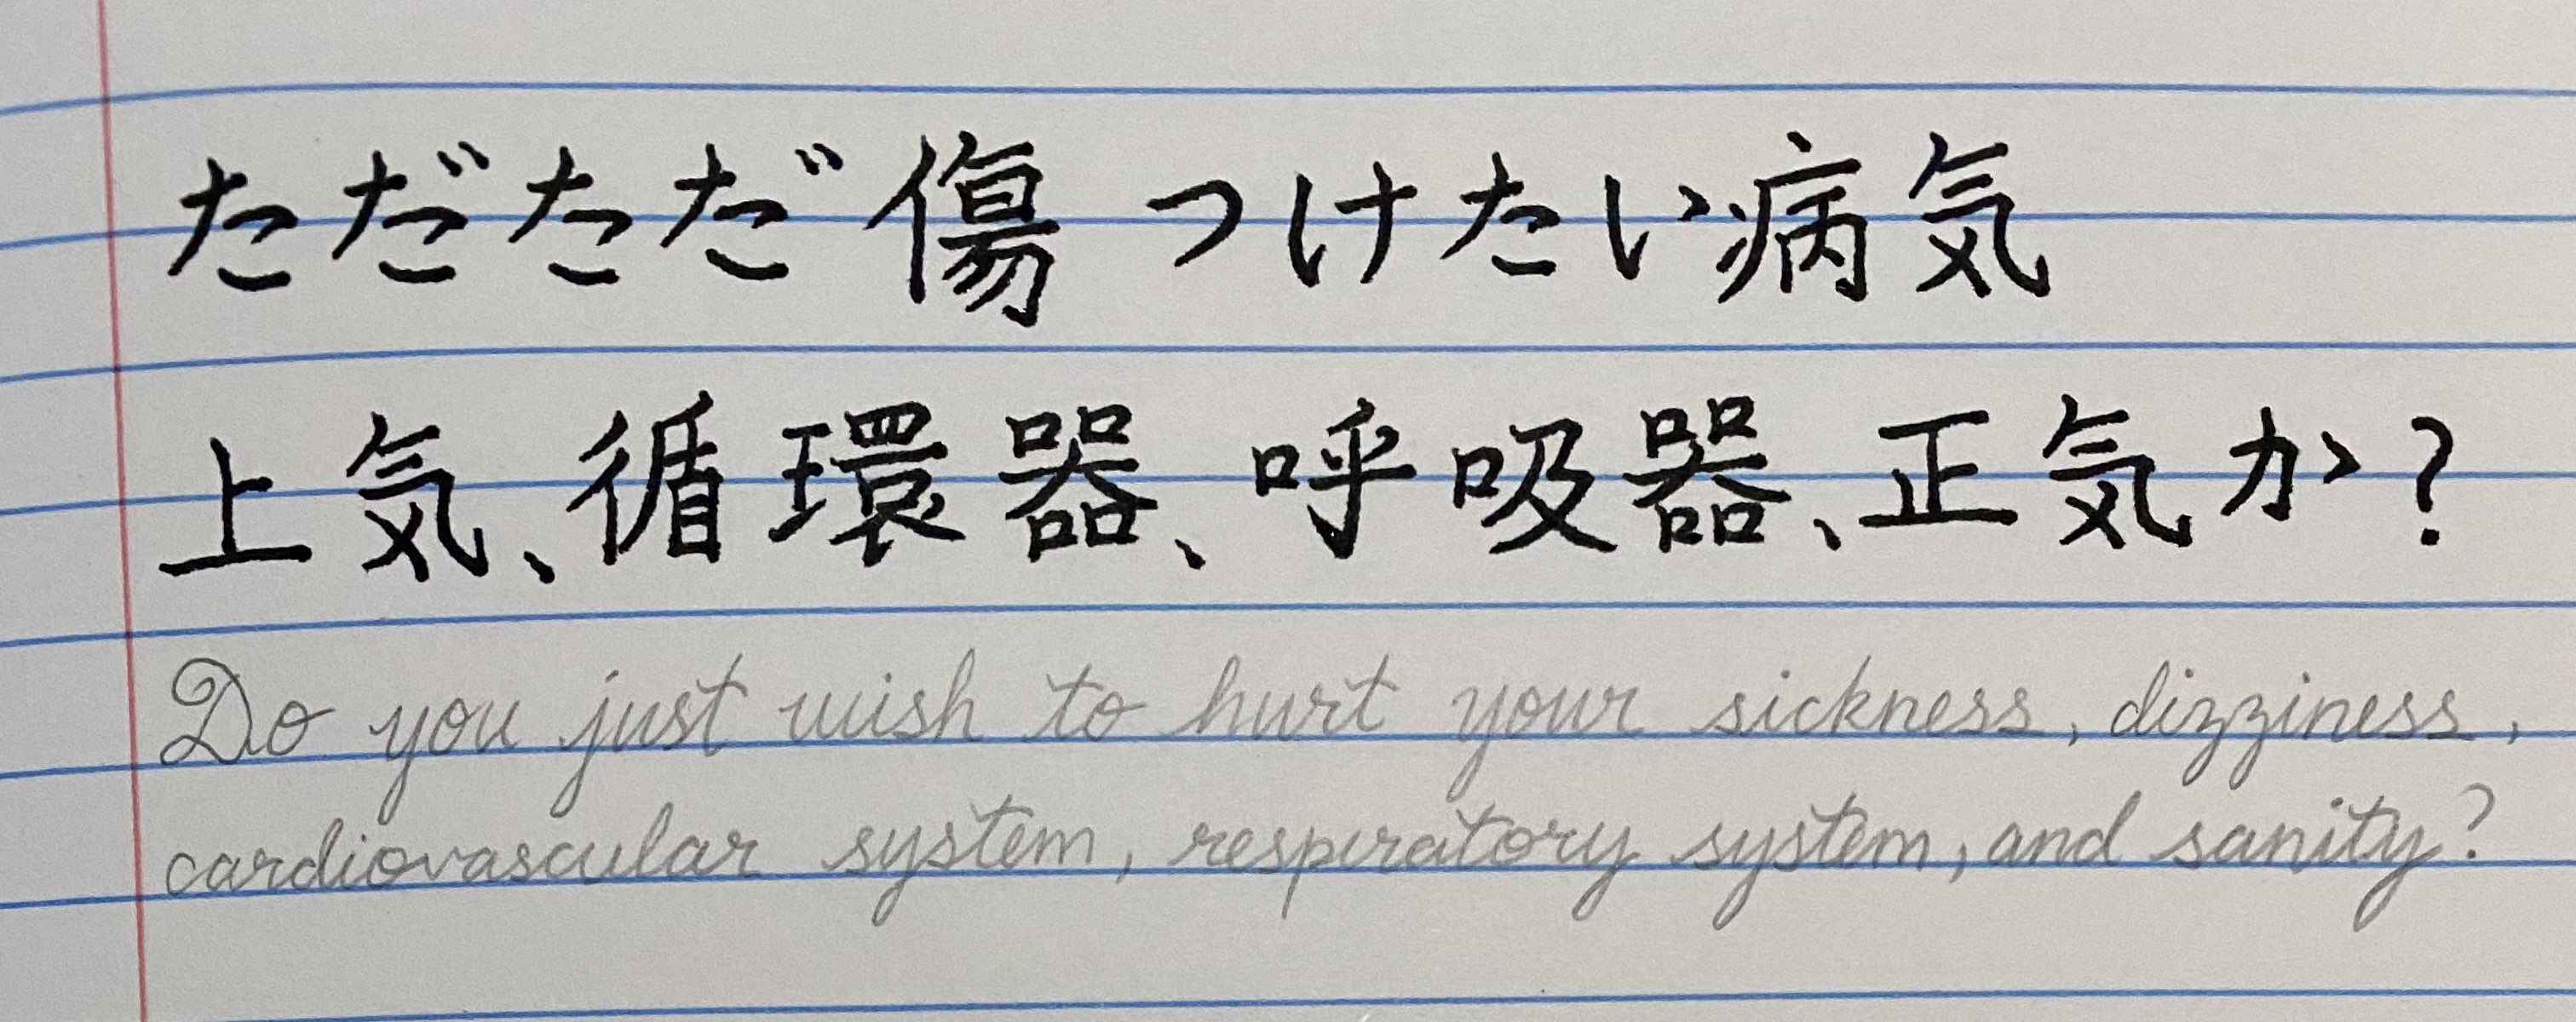 ただただ傷つけたい病気
上気、循環器、呼吸器、正気か?
Do you just wish to hurt your sickness, dizziness,
cardiovascular system, respiratory system, and sanity?